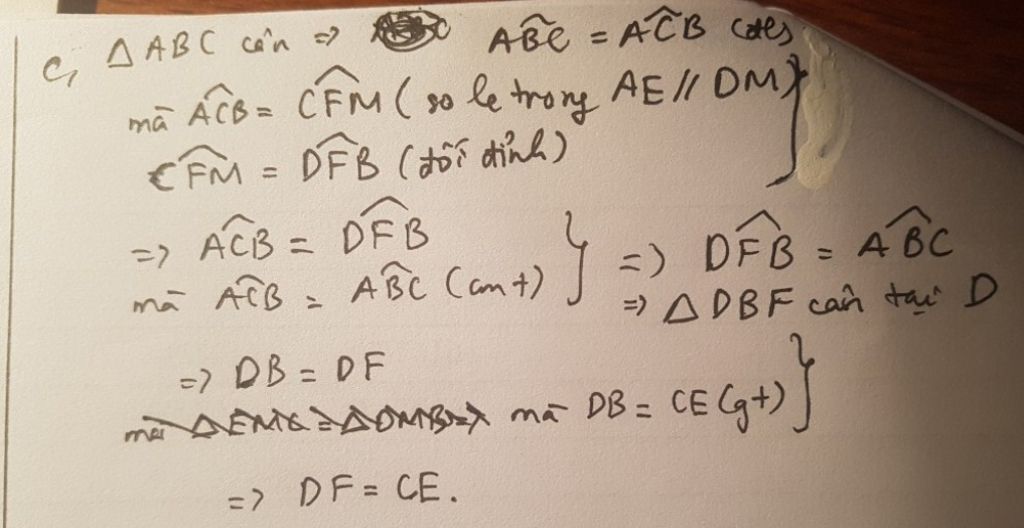 c, △ABC cân => ABC^ = ACB^
mà ACB^ = CFM^ (so le trong AE // DM)
CFM^ = DFB^ (đối đỉnh)
=> ACB^ = DFB^
mà ACB^ = ABC^ (cmt) } => DFB^ = ABC^
=> △DBF cân tại D
=> DB = DF
mà △EMC = △DMB => mà DB = CE (gt) }
=> DF = CE.